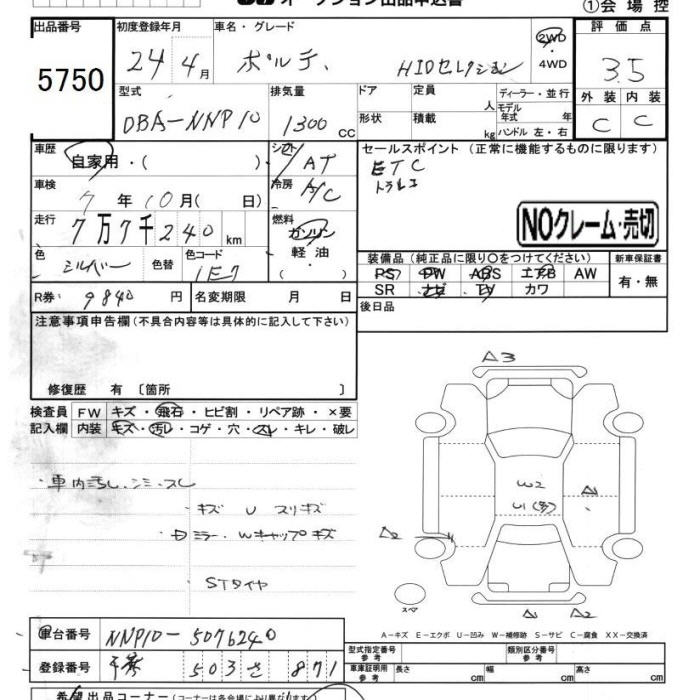 ①会場控
出品番号 初度登録年月 車名・グレード 評価点
5750 24 4月 ポルテ HIDセレクション 2WD 4WD 3.5
型式 排気量 ドア 定員 人 ディーラー・並行 外装 内装
DBA-NNP10 1300 cc 形状 積載 kg モデル年式 年 ハンドル 左・右 C C
車歴 自家用・( ) シフト AT セールスポイント (正常に機能するものに限ります)
車検 7年10月( 日) 冷房 A/C ETC
走行 7万7千240km 燃料 ガソリン 軽油 ・( )
NOクレーム・売切
色 シルバー 色替 色コード 1E7
装備品(純正品に限り○をつけてください) 新車保証書
PS PW ABS エアB AW 有・無
SR ナビ TV カワ
R券: 9840円 名変期限 月 日 後日品
注意事項申告欄(不具合内容等は具体的に記入して下さい)
修復歴 有 〔箇所 〕
検査員 FW キズ・飛石・ヒビ割・リペア跡・×要
記入欄 内装 キズ・汚レ・コゲ・穴・スレ・キレ・破レ
・車内汚し・シミ・スレ
キズ U スリキズ
ミラー・Wキャップキズ
STタイヤ
A3
W2
U1(多)
A1
A2
A1 A2
スペア
A-キズ E-エクボ U-凹み W-補修跡 S-サビ C-腐食 XX-交換済
車台番号 NNP10-5076240
登録番号 503 さ 871
型式指定番号 参考 類別区分番号 参考
車車証明用 参考 長さ cm 幅 cm 高さ cm
希望出品コーナー